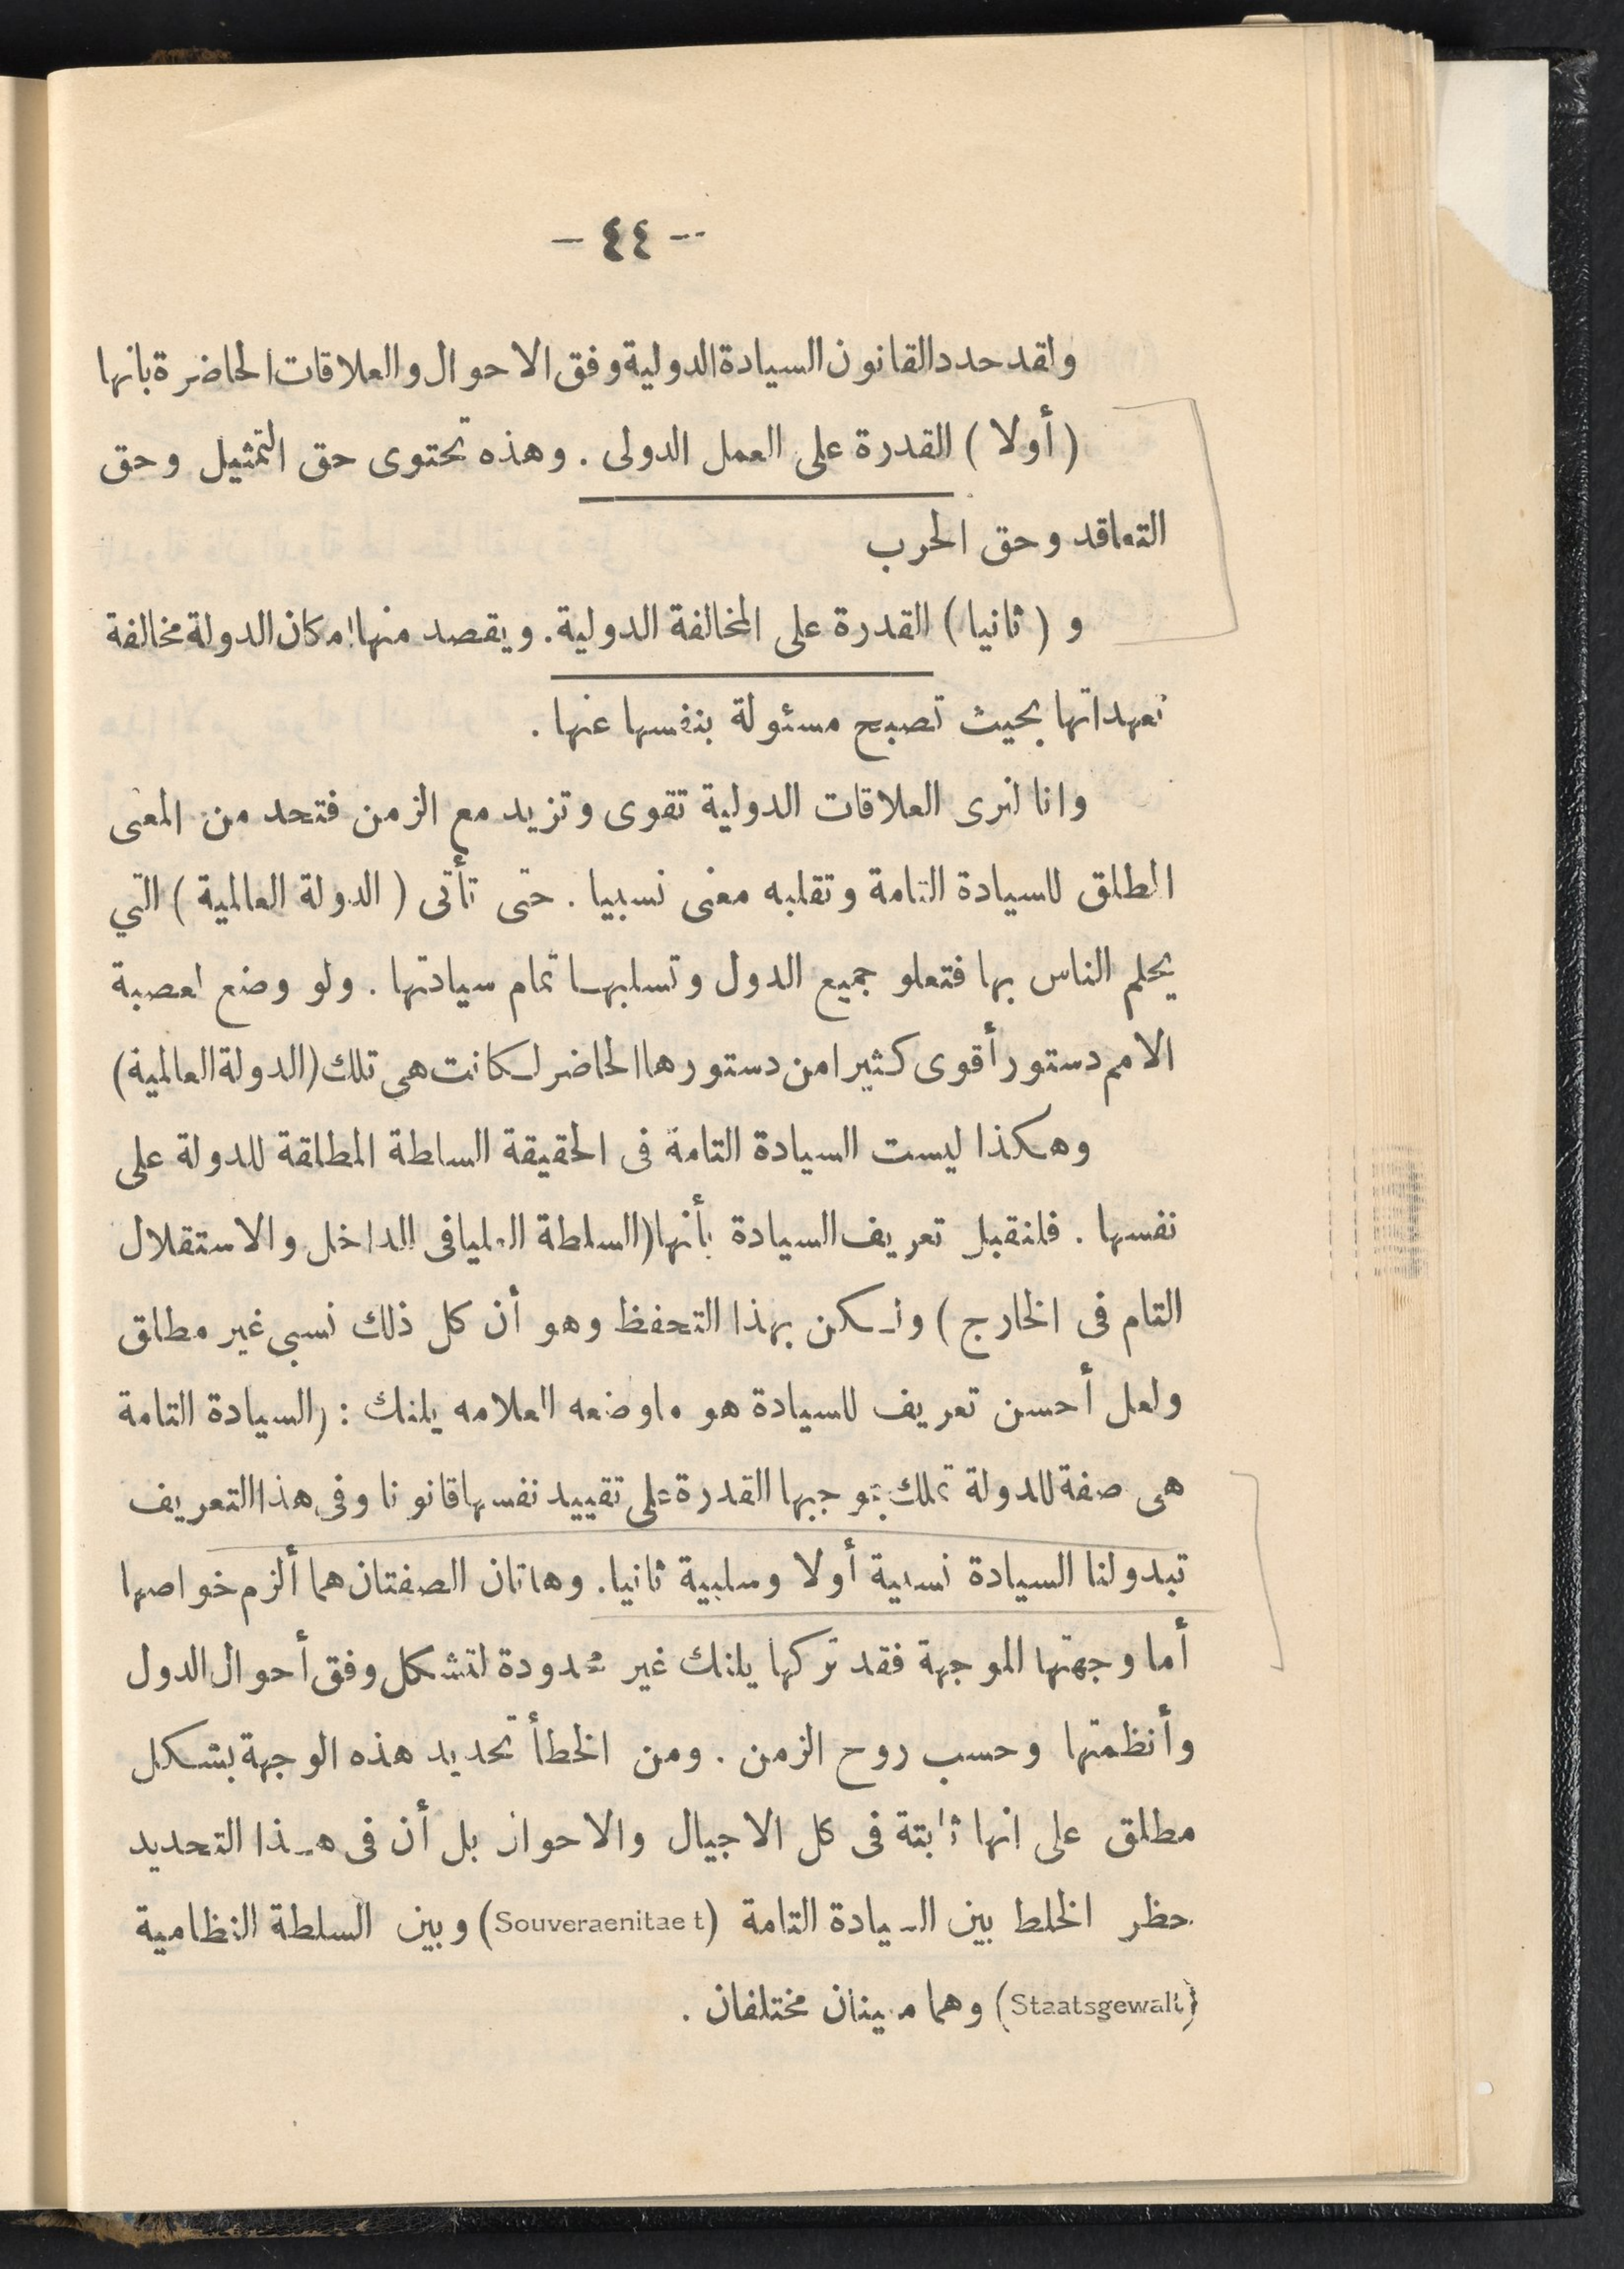 -- ٤٤ -
ولقد حدد القانون السيادة الدولية وفق الاحوال والعلاقات الحاضرة بانها
(أولا) القدرة على العمل الدولى . وهذه تحتوى حق التمثيل وحق
التعاقد وحق الحرب
و (ثانيا) القدرة على المخالفة الدولية. ويقصد منها امكان الدولة مخالفة
تعهداتها بحيث تصبح مسئولة بنفسها عنها .
وانا لنرى العلاقات الدولية تقوى وتزيد مع الزمن فتحد من المعنى
المطلق للسيادة التامة وتقلبه معنى نسبيا . حتى تأتى (الدولة العالمية) التي
يحلم الناس بها فتعلو جميع الدول وتسلبهـا تمام سيادتها . ولو وضع لعصبة
الامم دستور أقوى كثيرا من دستورها الحاضر لـكانت هى تلك (الدولة العالمية)
وهـكذا ليست السيادة التامة فى الحقيقة السلطة المطلقة للدولة على
نفسها . فلنقبل تعريف السيادة بأنها (السلطة العليا فى الداخل والاستقلال
التام فى الخارج) ولـكن بهذا التحفظ وهو أن كل ذلك نسبى غير مطلق
ولعل أحسن تعريف للسيادة هو ماوضعه العلامه يلنك : (السيادة التامة
هى صفة للدولة تملك بموجبها القدرة على تقييد نفسها قانونا وفى هذا التعريف
تبدو لنا السيادة نسبية أولا وسلبية ثانيا. وهاتان الصفتان هما ألزم خواصها
أما وجهتها الموجبة فقد تركها يلنك غير محدودة لتتشكل وفق أحوال الدول
وأنظمتها وحسب روح الزمن . ومن الخطأ تحديد هذه الوجهة بشـكل
مطلق على انها ثابتة فى كل الاجيال والاحوال بل أن فى هـذا التحديد
حظر الخلط بين السيادة التامة (Souveraenitaet) وبين السلطة النظامية
(Staatsgewalt) وهما معينان مختلفان .